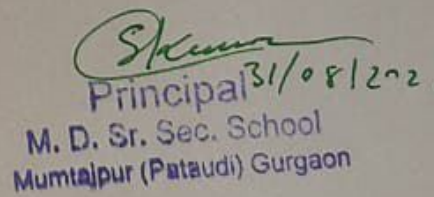 SKumar
Principal 31/08/202
M. D. Sr. Sec. School
Mumtajpur (Pataudi) Gurgaon